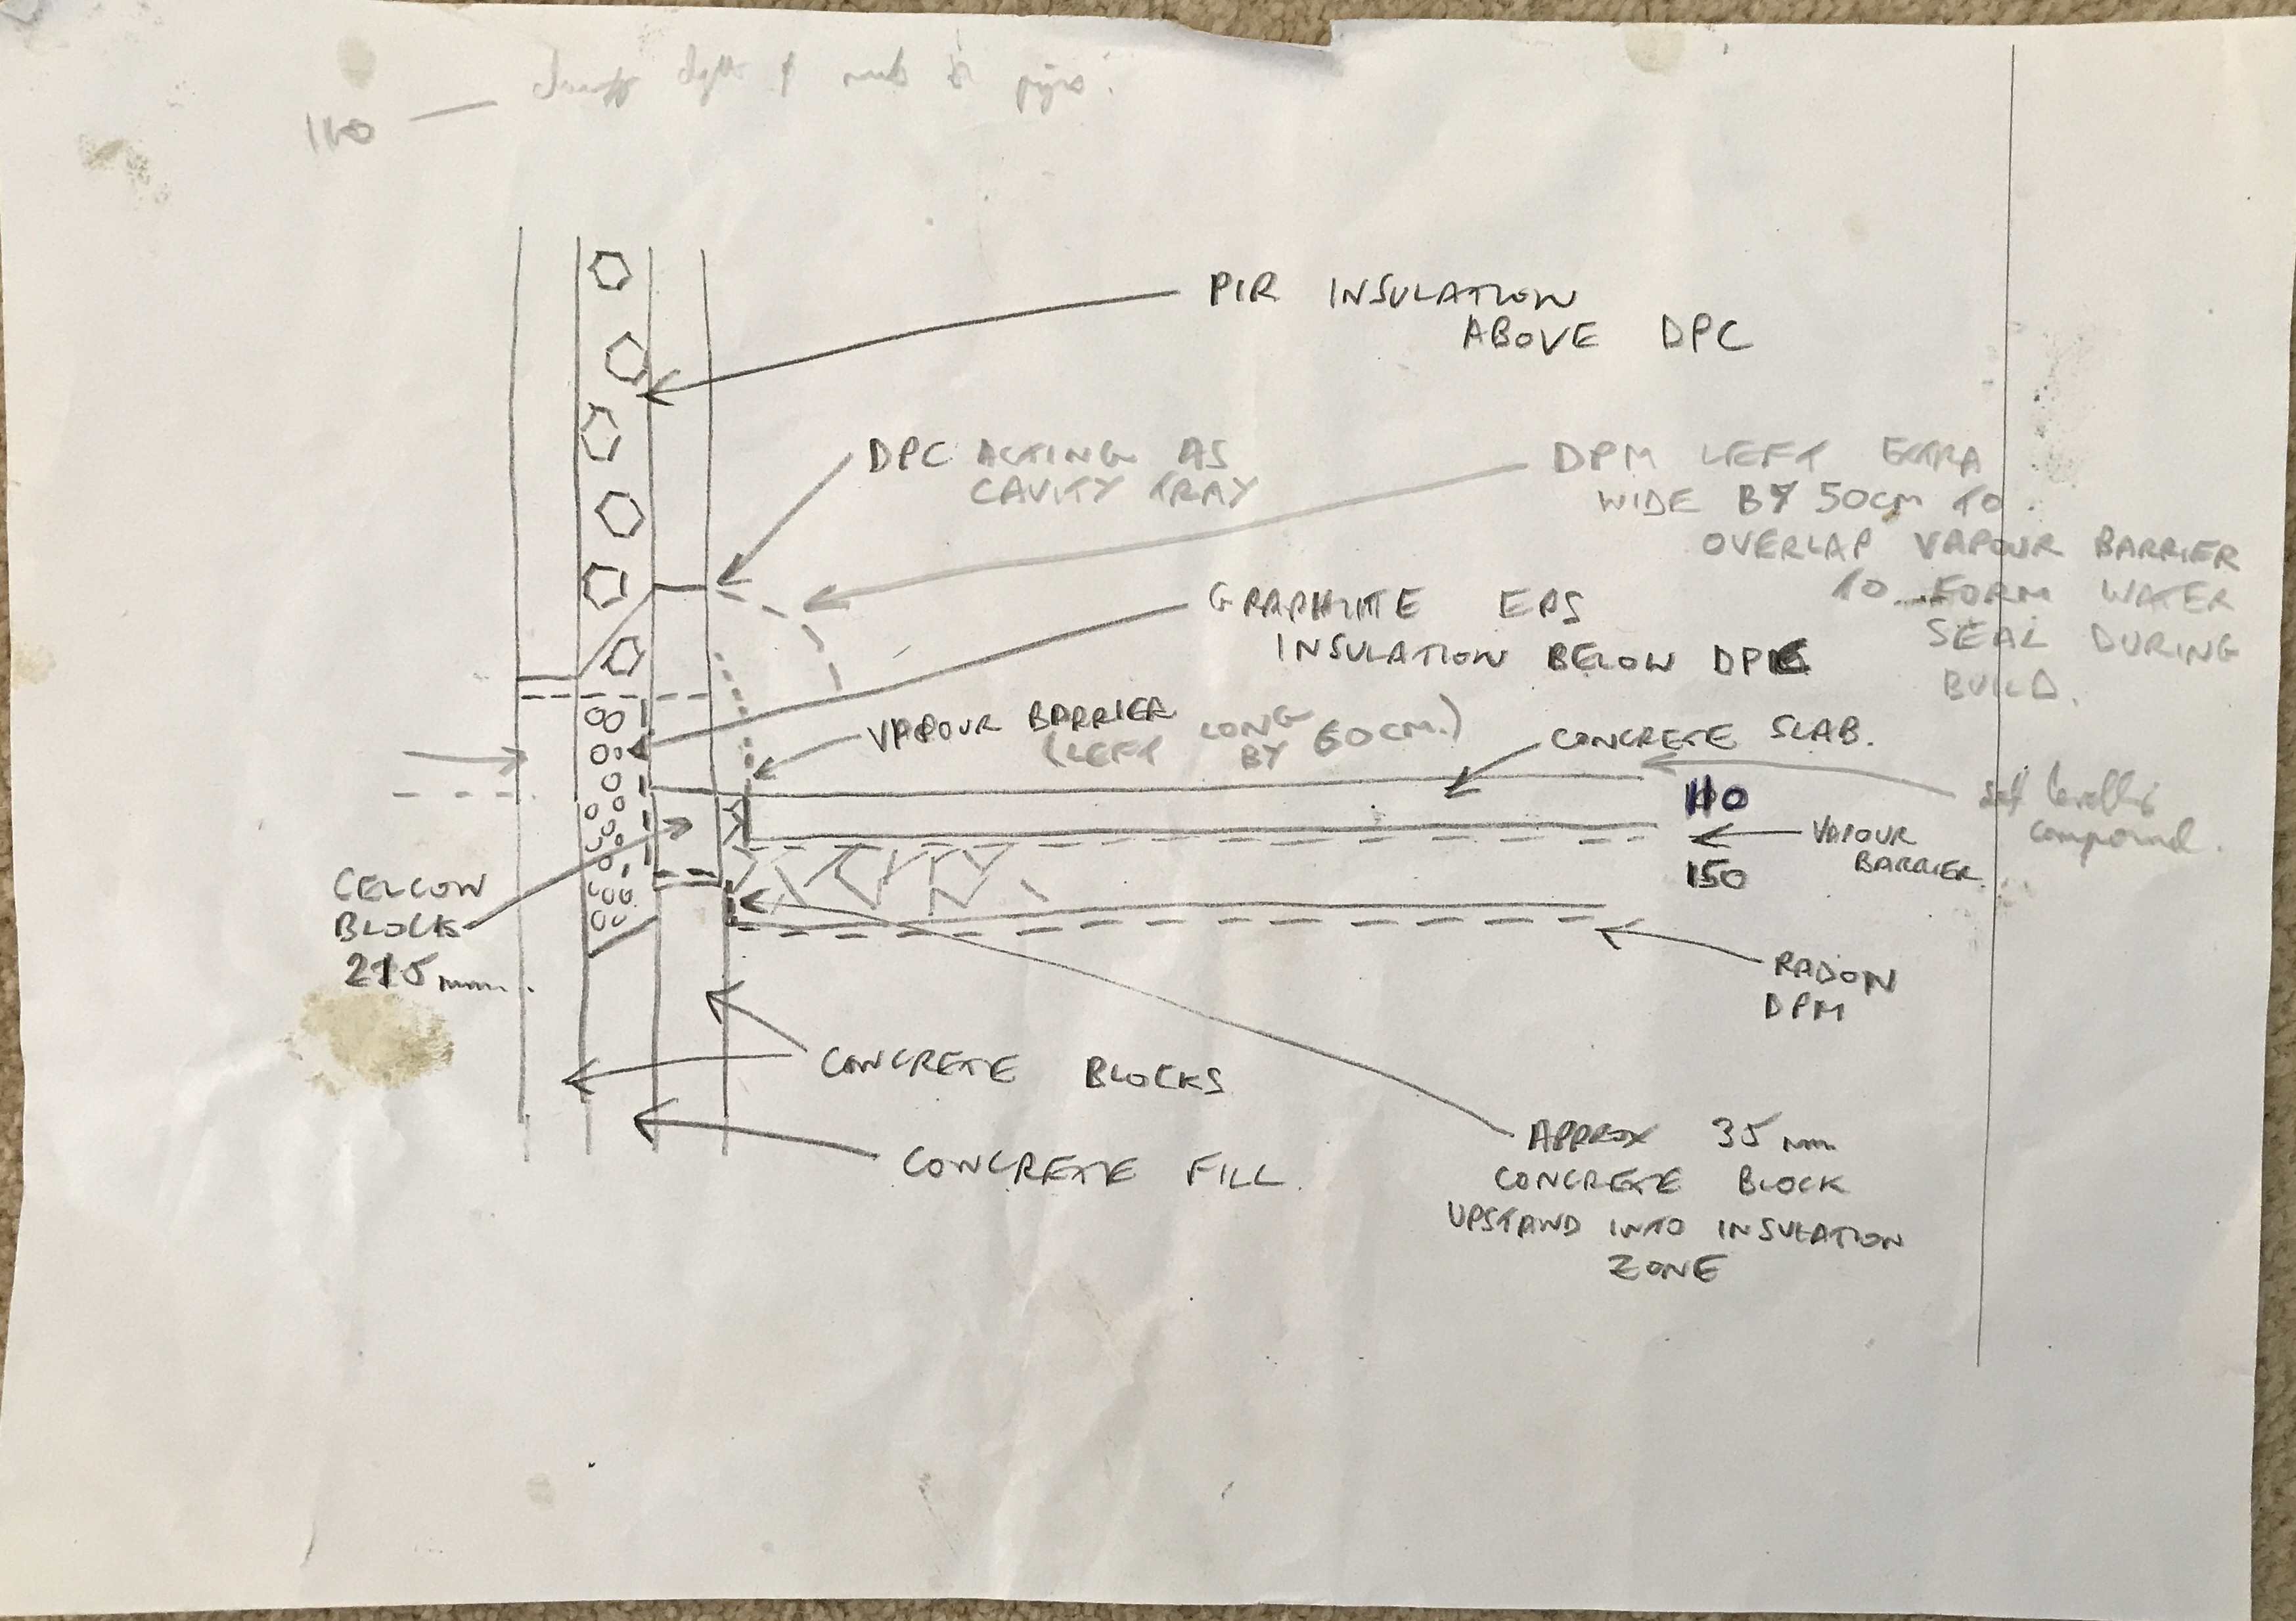 110 — of
PIR INSULATION
ABOVE DPC
DPC ACTING AS
CAVITY TRAY
DPM LEFT EXTRA
WIDE BY 50CM TO
OVERLAP VAPOUR BARRIER
TO FORM WATER
SEAL DURING
BUILD.
GRAPHITE EPS
INSULATION BELOW DPC
VAPOUR BARRIER
(LEFT LONG
BY 60CM.)
CONCRETE SLAB.
110
self levelling
compound.
VAPOUR
BARRIER.
150
CELCON
BLOCK
215mm.
RADON
DPM
CONCRETE BLOCKS
CONCRETE FILL.
APPROX 35mm
CONCRETE BLOCK
UPSTAND INTO INSULATION
ZONE